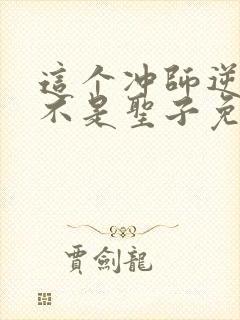 這个冲師逆
不是聖子免
賈劍龍